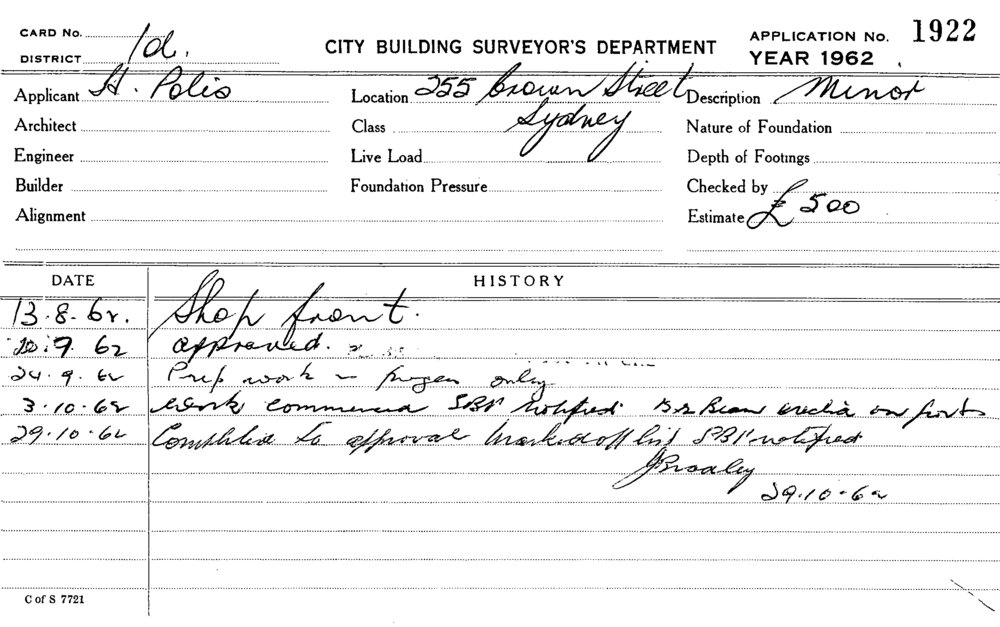 CARD No.
DISTRICT 1d.
CITY BUILDING SURVEYOR'S DEPARTMENT
APPLICATION No. 1922
YEAR 1962
Applicant H. Polis Location 255 Crown Street Description Minor
Architect Class Sydney Nature of Foundation
Engineer Live Load Depth of Footings
Builder Foundation Pressure Checked by
Alignment Estimate £ 500
DATE HISTORY
13.8.62. Shop front.
20.9.62 approved.
24.9.62 Prep work only
3.10.62 Work commenced SBI notified on
29.10.62 Completed to approval Marked off list SBI notified
29.10.62
C of S 7721